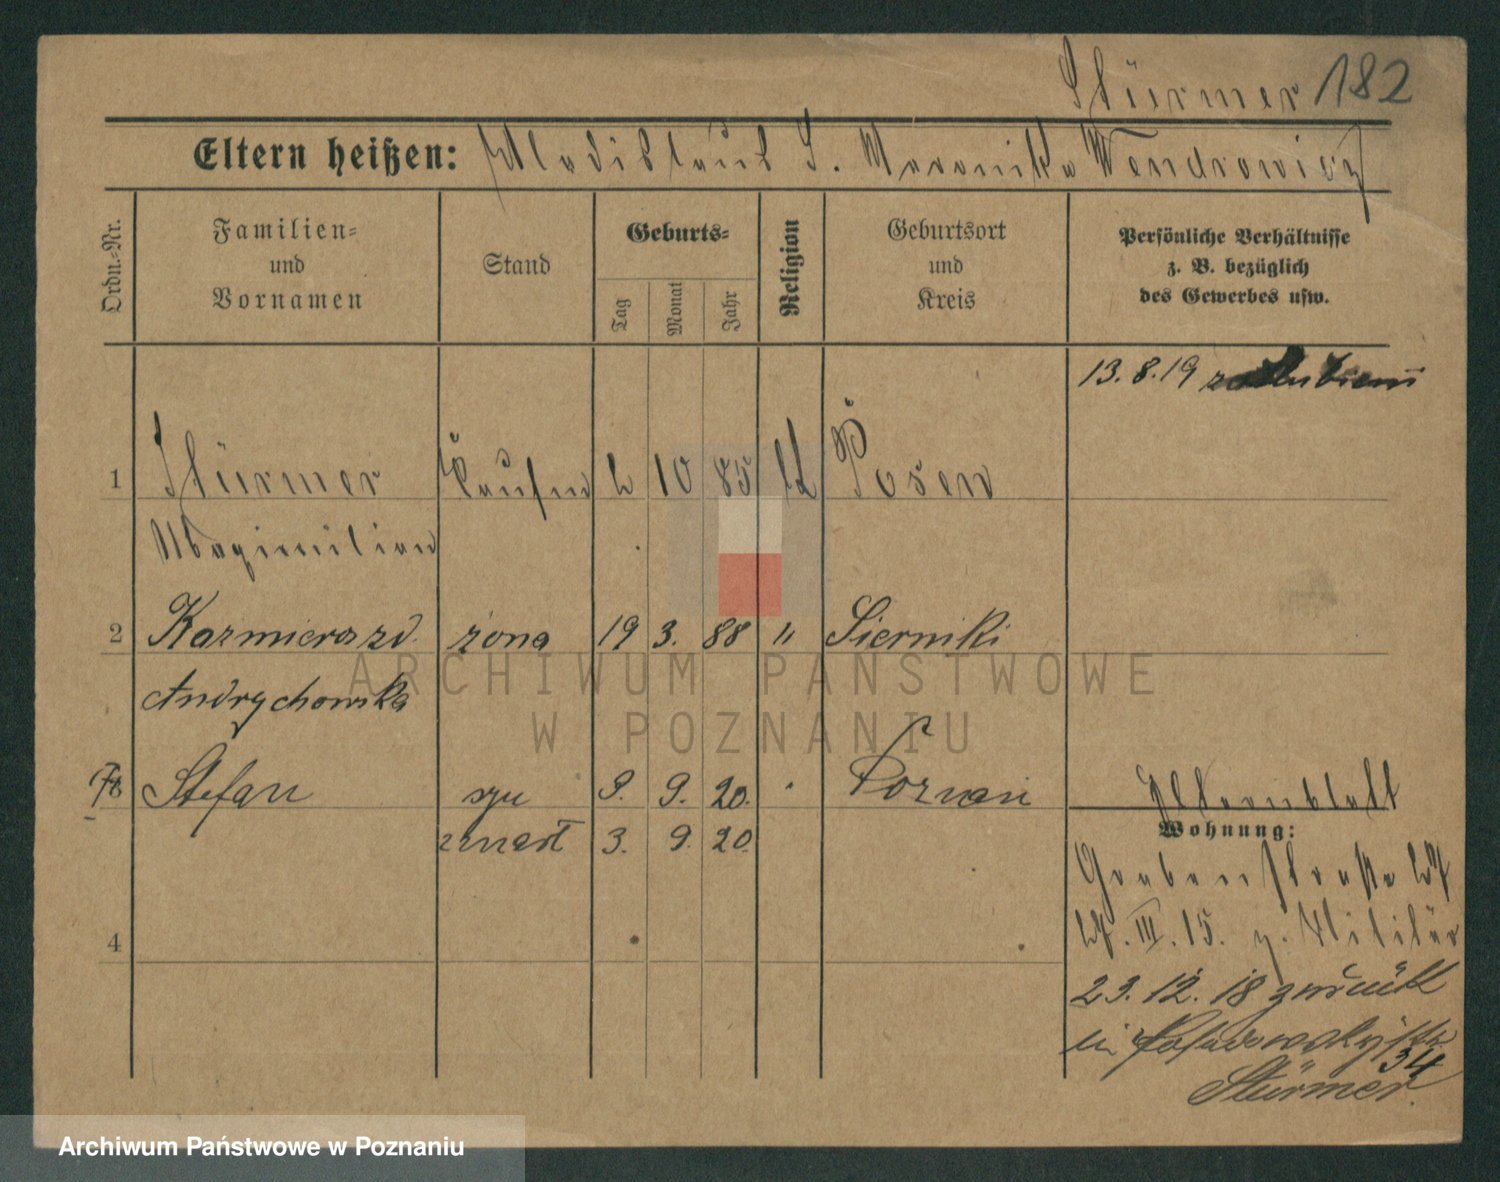 Stürmer 182
Eltern heißen: Wladislaus S. Maronika Wendrowicz
Ordn.-Nr.
Familien-
und
Vornamen
Stand
Geburts-
Tag
Monat
Jahr
Religion
Geburtsort
und
Kreis
Persönliche Verhältnisse
z. B. bezüglich
des Gewerbes usw.
13.8.19
1 Stürmer Kaufm 10 85 Posen
Maximilian
2 Kazmiera zd. żona 19 3. 88 " Sierniki
Andrychowska
Stefan syn 9. 9. 20. Poznań
zmarł 3. 9. 20.
4
Elternblatt
Wohnung:
Grabenstraße
III. 15. z. Militär
23. 12. 18 zurück
in
34
Stürmer.
ARCHIWUM PAŃSTWOWE
W POZNANIU
Archiwum Państwowe w Poznaniu